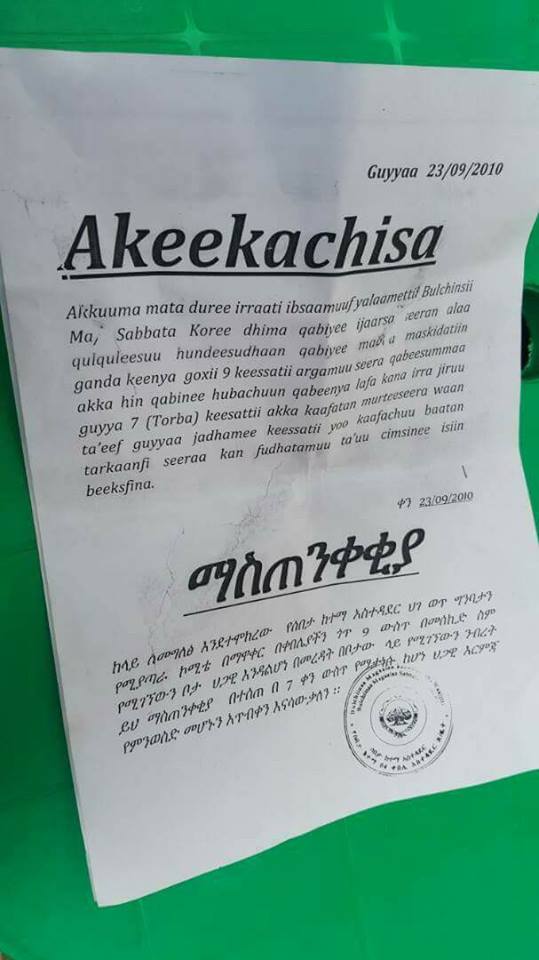 Guyyaa 23/09/2010
Akeekachisa
Akkuuma mata duree irraati ibsaamuuf yalaamettif Bulchinsii
Ma, Sabbata Koree dhima qabiyee ijaarsa seeran alaa
qulquleesuu hundeesudhaan qabiyee maqa maskidatiin
ganda keenya goxii 9 keessatii argamuu seera qabeesummaa
akka hin qabinee hubachuun qabeenya lafa kana irra jiruu
guyya 7 (Torba) keesattii akka kaafatan murteeseera waan
ta'eef guyyaa jadhamee keessatii yoo kaafachuu baatan
tarkaanfi seeraa kan fudhatamuu ta'uu cimsinee isiin
beeksfina.
ቀን 23/09/2010
ማስጠንቀቂያ
ከላይ ለመግለፅ እንደተሞከረው የሰበታ ከተማ አስተዳደር ህገ ወጥ ግንባታን
የሚያጣራ ኮሚቴ በማዋቀር በቀበሌያችን ጎጥ 9 ውስጥ በመስኪድ ስም
የሚገኘውን ቦታ ህጋዊ እንዳልሆነ በመረዳት በቦታው ላይ የሚገኘውን ንብረት
ይህ ማስጠንቀቂያ በተሰጠ በ 7 ቀን ውስጥ ከሆነ ህጋዊ እርምጃ
የምንወስድ መሆኑን አጥብቀን እናሳውቃለን ።